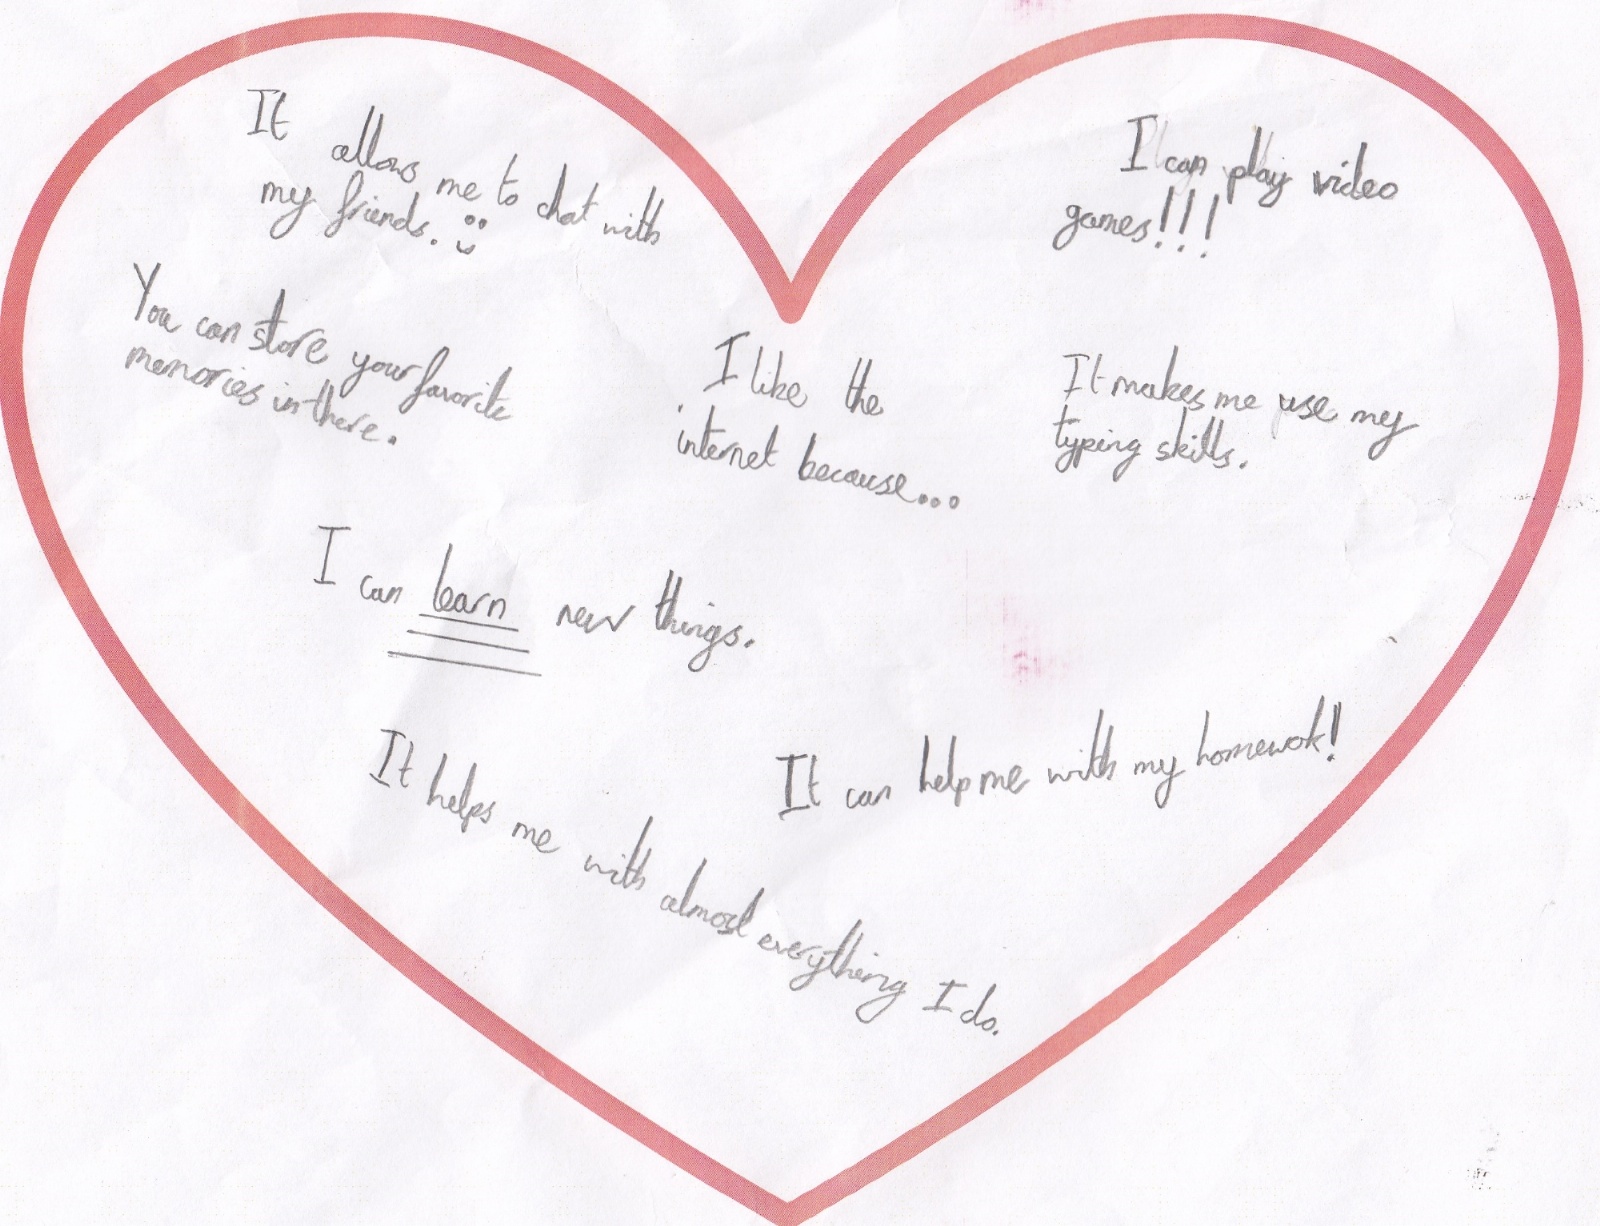 It allows me to chat with
my friends. :)
I can play video
games!!!
You can store your favorite
memories in there.
I like the
internet because...
It makes me use my
typing skills.
I can learn new things.
It can help me with my homewok!
It helps me with almost everything I do.